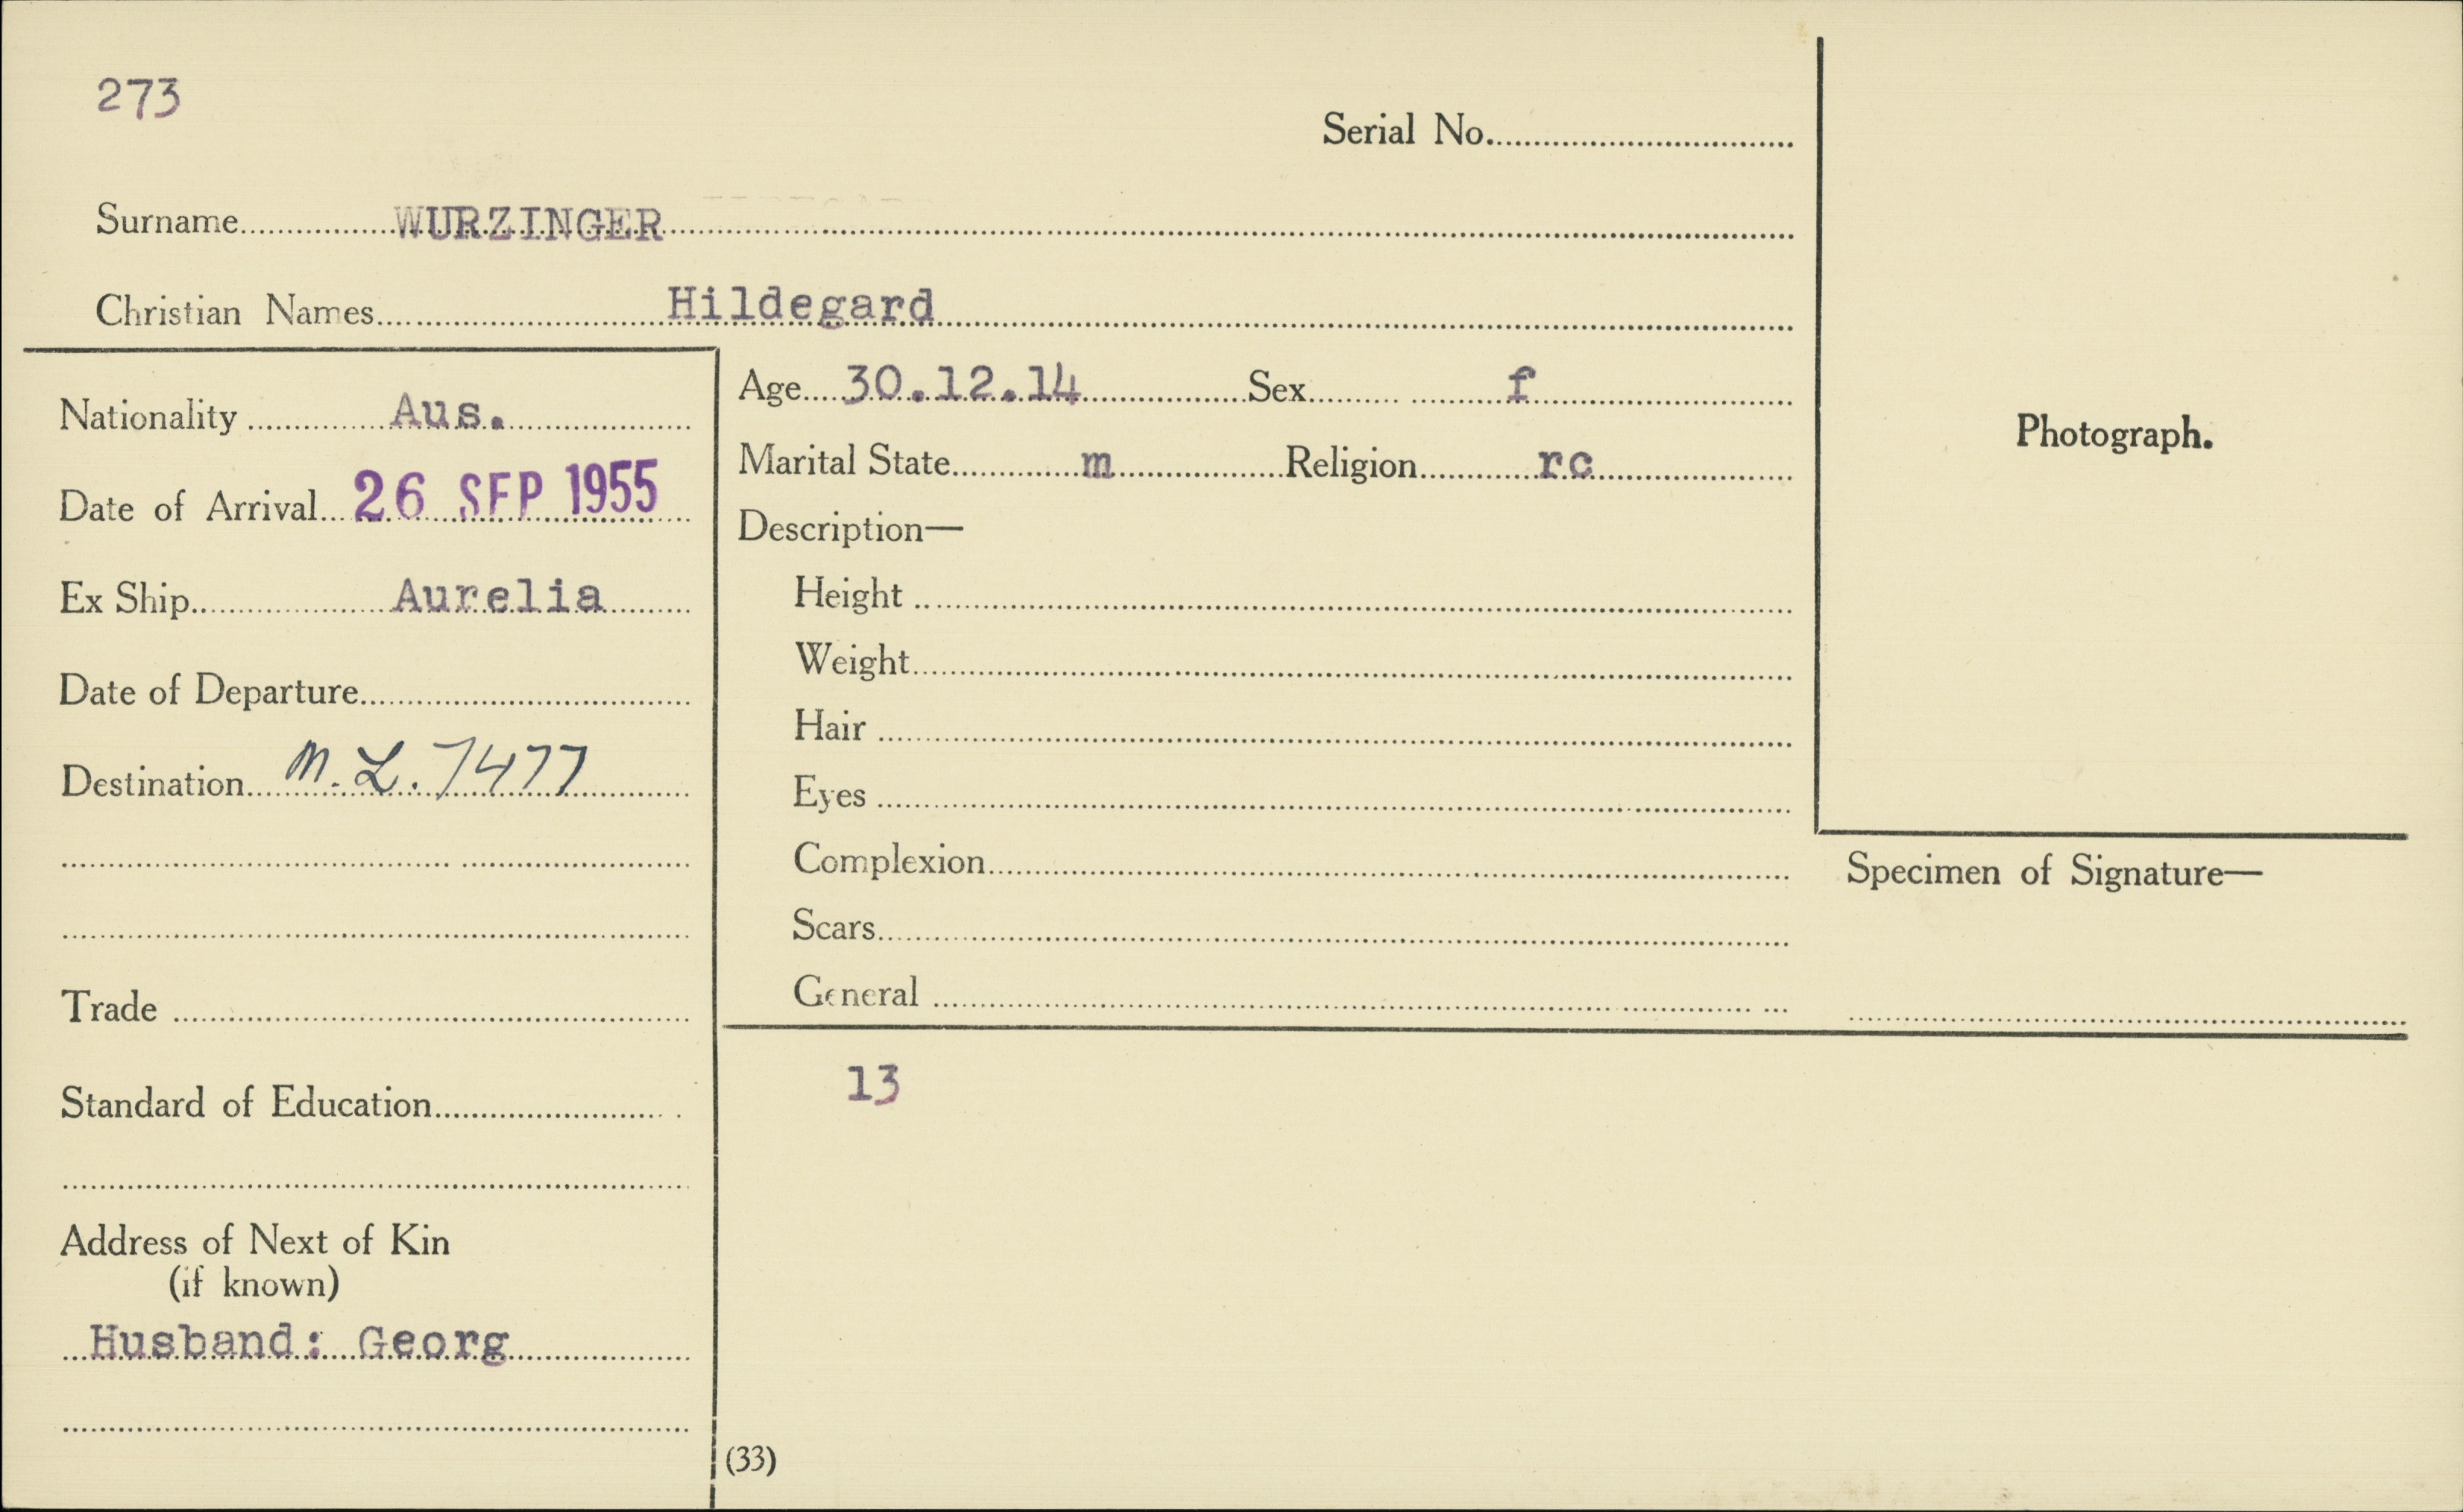 273
Serial No.
Surname WURZINGER
Christian Names Hildegard
Nationality Aus.
Date of Arrival 26 SEP 1955
Ex Ship Aurelia
Date of Departure
Destination M.L. 7477
Trade
Standard of Education
Address of Next of Kin
(if known)
Husband: Georg
Age 30.12.14 Sex f
Marital State m Religion rc
Description—
Height
Weight
Hair
Eyes
Complexion
Scars
General
13
(33)
Photograph.
Specimen of Signature—